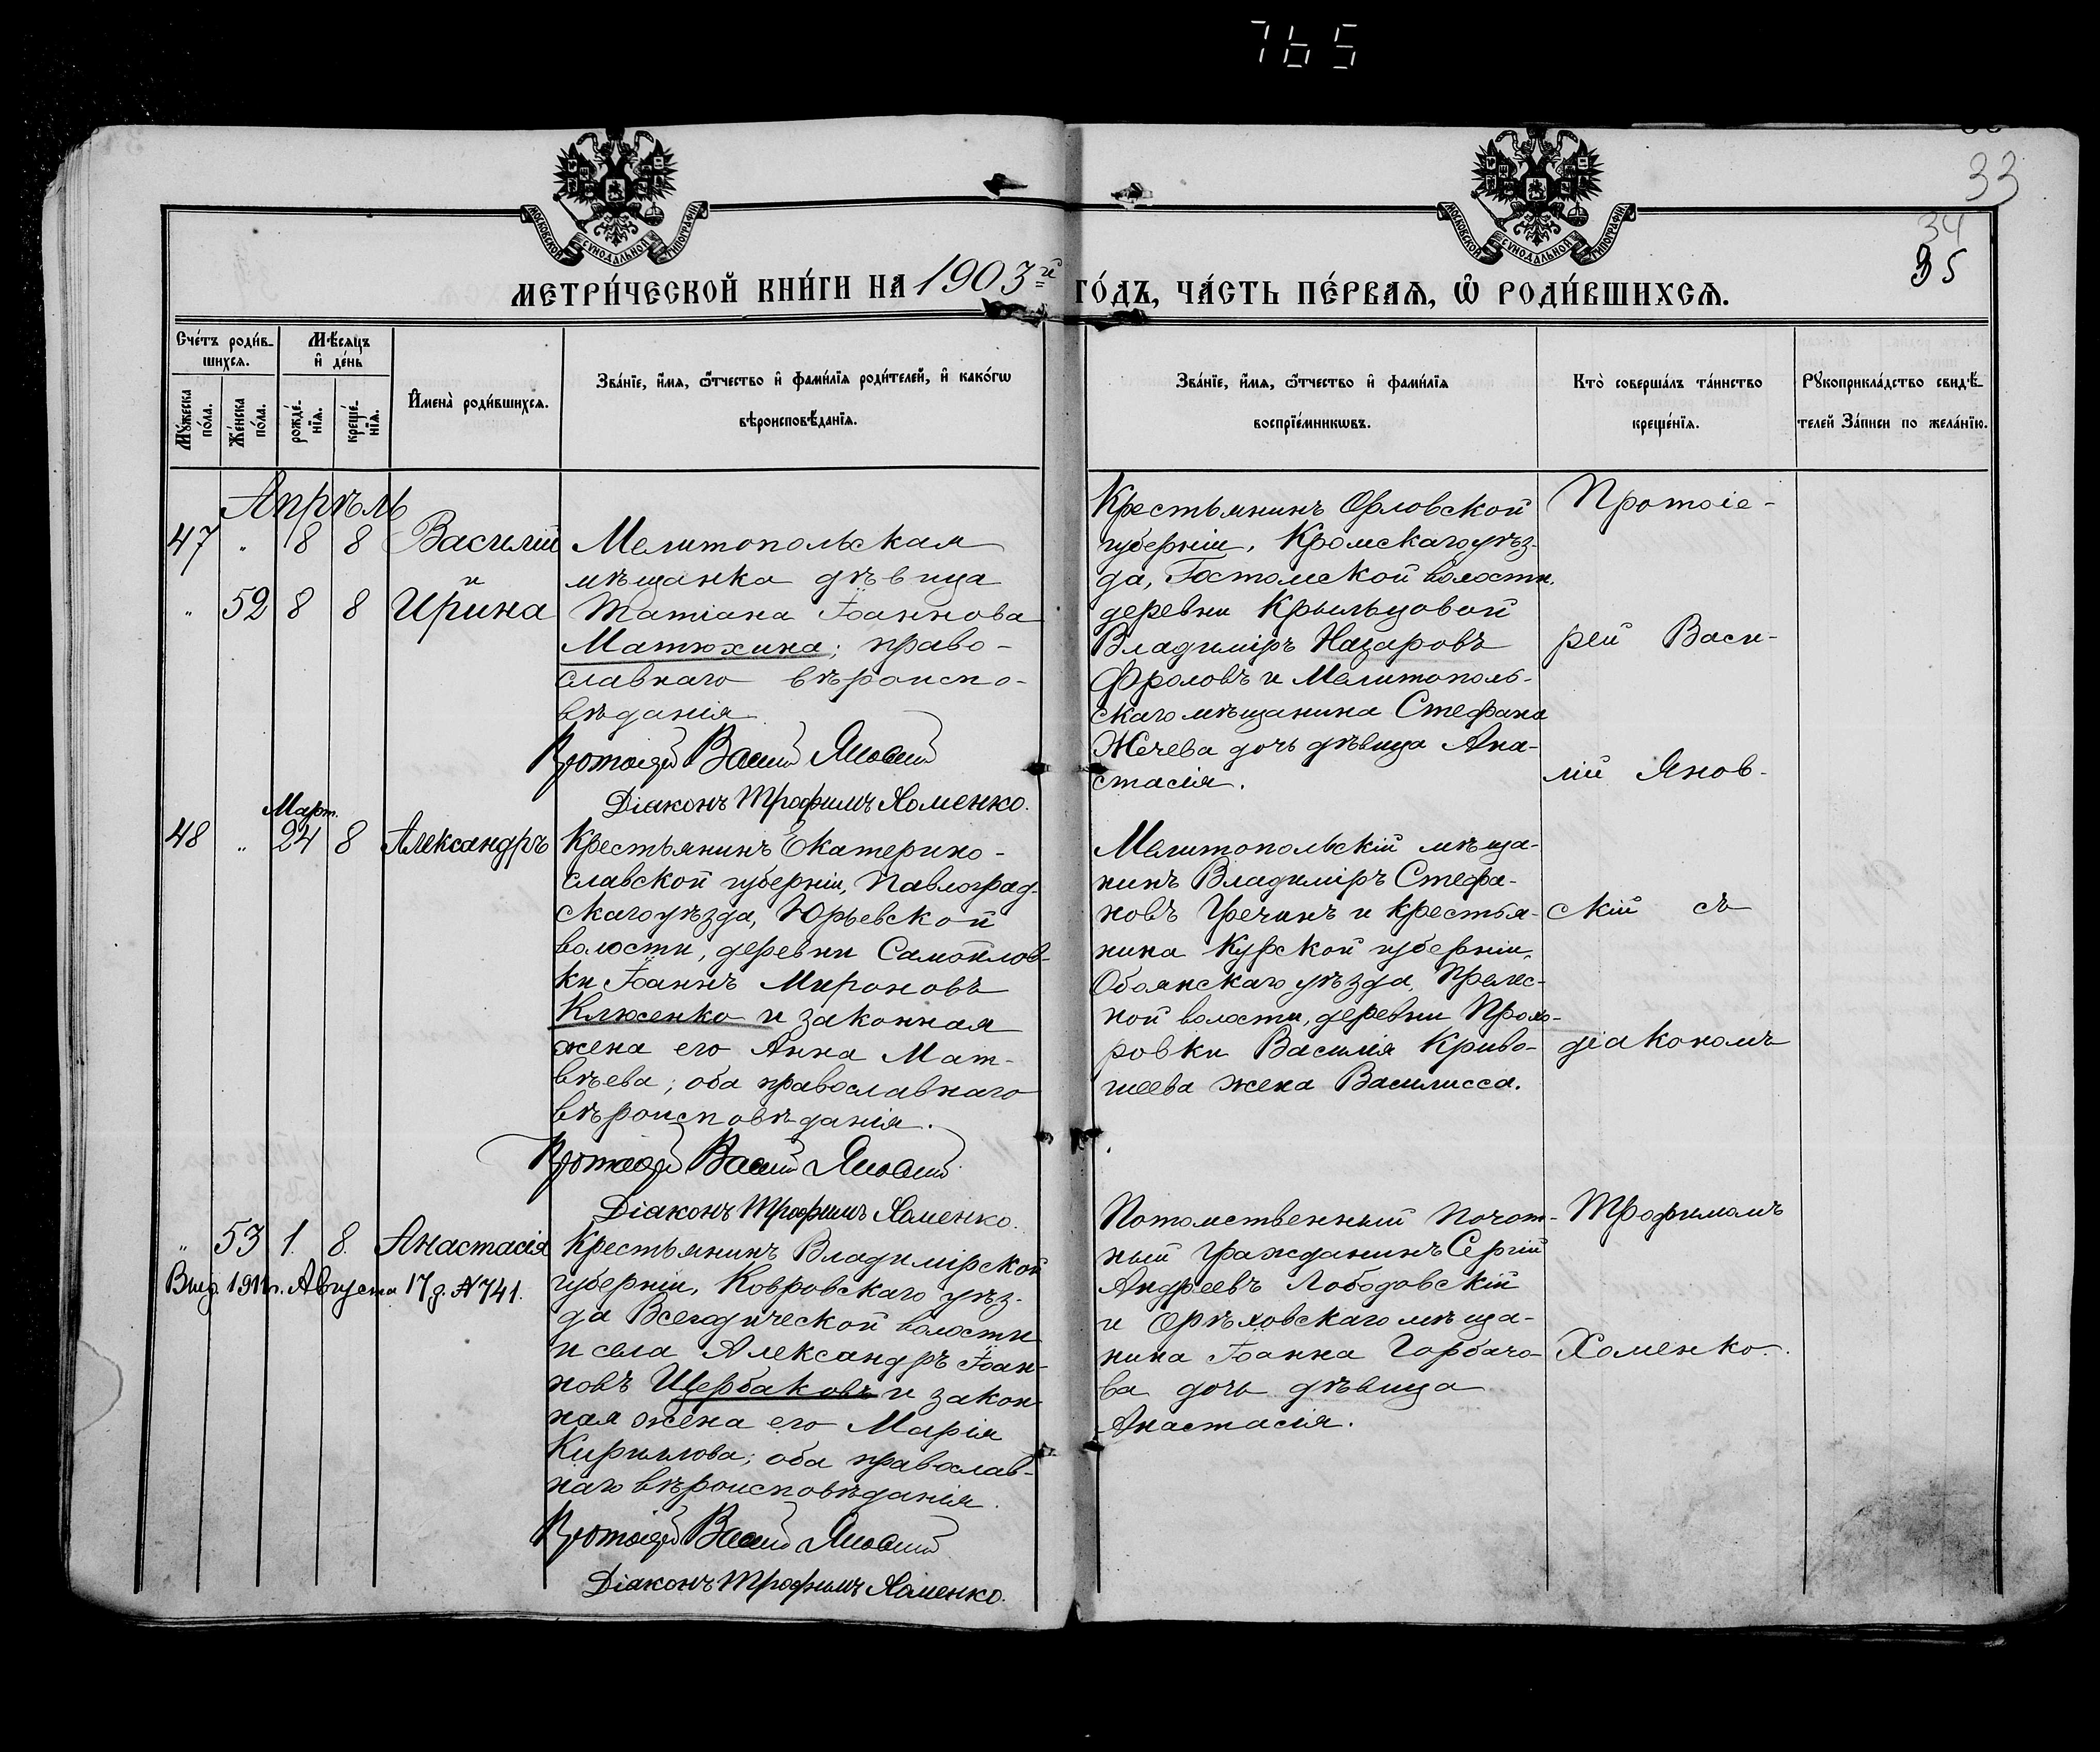 765
33
34
35
МОСКОВСКОЙ СѴНОДАЛЬНОЙ ТИПОГРАФІИ.
МОСКОВСКОЙ СѴНОДАЛЬНОЙ ТИПОГРАФІИ.
МЕТРИ́ЧЕСКОЙ КНИ́ГИ НА 1903й ГО́ДЪ, ЧА́СТЬ ПЕ́РВАѦ, Ѡ҆ РОДИ́ВШИХСѦ.
Сче́тъ роди́в-
шихся.
Мѣ́сяцъ
и҆ де́нь
Мꙋ́жеска
по́ла.
Же́нска
по́ла.
рожде́-
нїя.
креще́-
нїя.
И҆мена̀ роди́вшихся.
Зва́нїе, и҆́мя, ѻ҆́тчество и҆ фами́лїя роди́телей, и҆ како́гѡ
вѣроисповѣ́данїя.
Зва́нїе, и҆́мя, ѻ҆́тчество и҆ фами́лїя
воспрїе́мникѡвъ.
Кто̀ соверша́лъ та́инство
креще́нїя.
Рꙋкоприкла́дство свидѣ́-
телей За́писи по жела́нїю.
Апрѣль
47 " 8 8 Василій
и
" 52 8 8 Ирина
Мелитопольская
мѣщанка дѣвица
Татіана Іоаннова
Матюхина; право-
славнаго вѣроиспо-
вѣданія.
Протоіерей Василій Яновскій
Діаконъ Трофимъ Хоменко.
Крестьянинъ Орловской
губерніи, Кромскаго уѣз-
да, Гостомской волости,
деревни Крыльцовой
Владиміръ Назаровъ
Фроловъ и Мелитополь-
скаго мѣщанина Стефана
Жечева дочь дѣвица Ана-
стасія.
Март.
48 " 24 8 Александръ
Крестьянинъ Екатерино-
славской губерніи, Павлоград-
скаго уѣзда, Юрьевской
волости, деревни Самойлов-
ки Іоаннъ Мироновъ
Клюсенко и законная
жена его Анна Мат-
вѣева; оба православнаго
вѣроисповѣданія.
Протоіерей Василій Яновскій
Діаконъ Трофимъ Хоменко.
Мелитопольскій мѣща-
нинъ Владиміръ Стефа-
новъ Гречинъ и крестья-
нина Курской губерніи,
Обоянскаго уѣзда, Прелес-
ной волости, деревни Прохо-
ровки Василія Криво-
шеева жена Василисса.
" 53 1. 8. Анастасія
Выд. 1911 г. Августа 17 д. № 741.
Крестьянинъ Владимірской
губерніи, Ковровскаго уѣз-
да Всегодической волости
и села Александръ Іоан-
новъ Щербаковъ и закон-
ная жена его Марія
Кириллова; оба православ-
наго вѣроисповѣданія.
Протоіерей Василій Яновскій
Діаконъ Трофимъ Хоменко.
Потомственный почот-
ный гражданинъ Сергій
Андреевъ Лободовскій
и Орѣховскаго мѣща-
нина Іоанна Горбачо-
ва дочь дѣвица
Анастасія.
Протоіе-
рей Васи-
лій Янов-
скій съ
діакономъ
Трофимомъ
Хоменко.